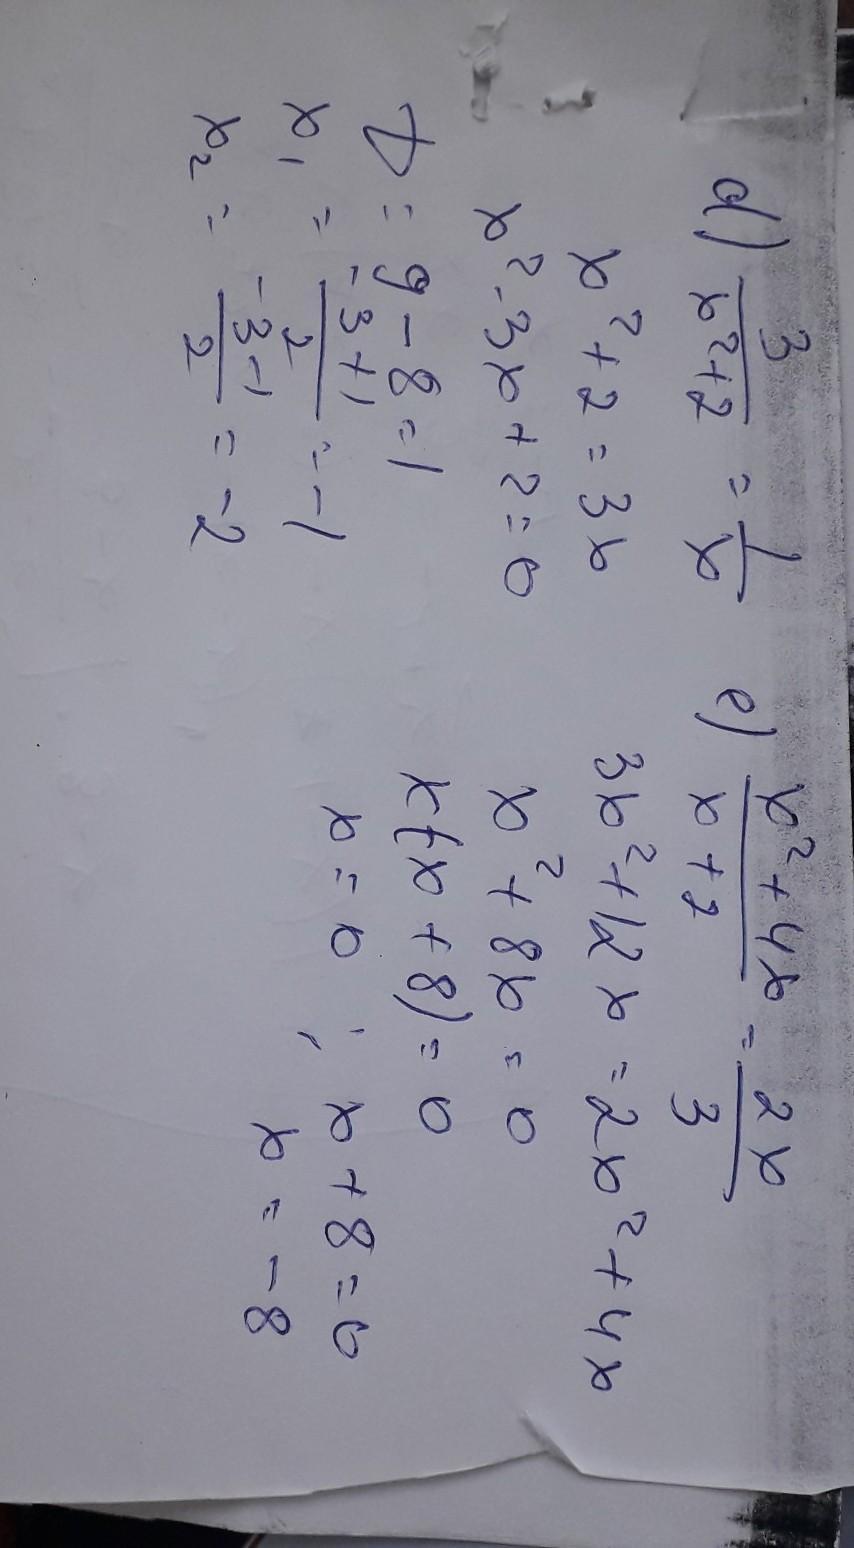 d) 3/(x²+2) = 1/x
x²+2 = 3x
x²-3x+2=0
D = 9-8=1
x₁ = (-3+1)/2 = -1
x₂ = (-3-1)/2 = -2
e) (x²+4x)/(x+2) = 2x/3
3x²+12x = 2x²+4x
x²+8x=0
x(x+8)=0
x=0 ; x+8=0
x = -8